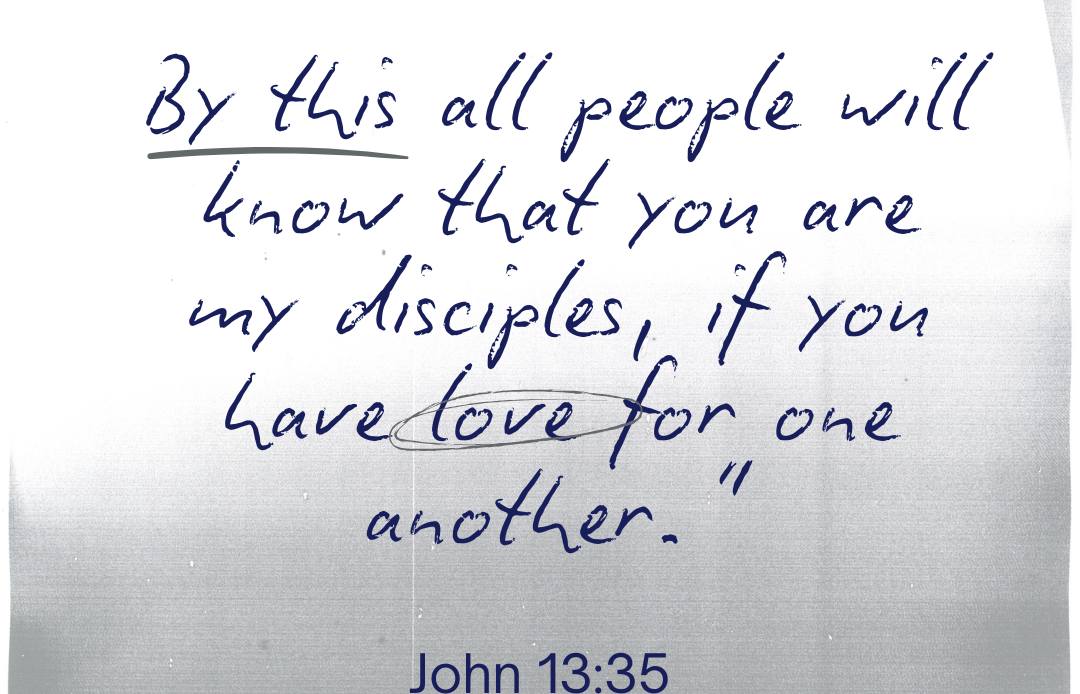 By this all people will
know that you are
my disciples, if you
have love for one
another."
John 13:35